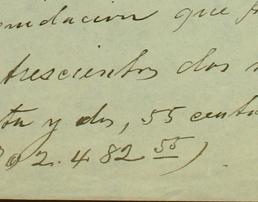 endacion que
trescientos dos
ta y dos, 55 cent
302.482 55)